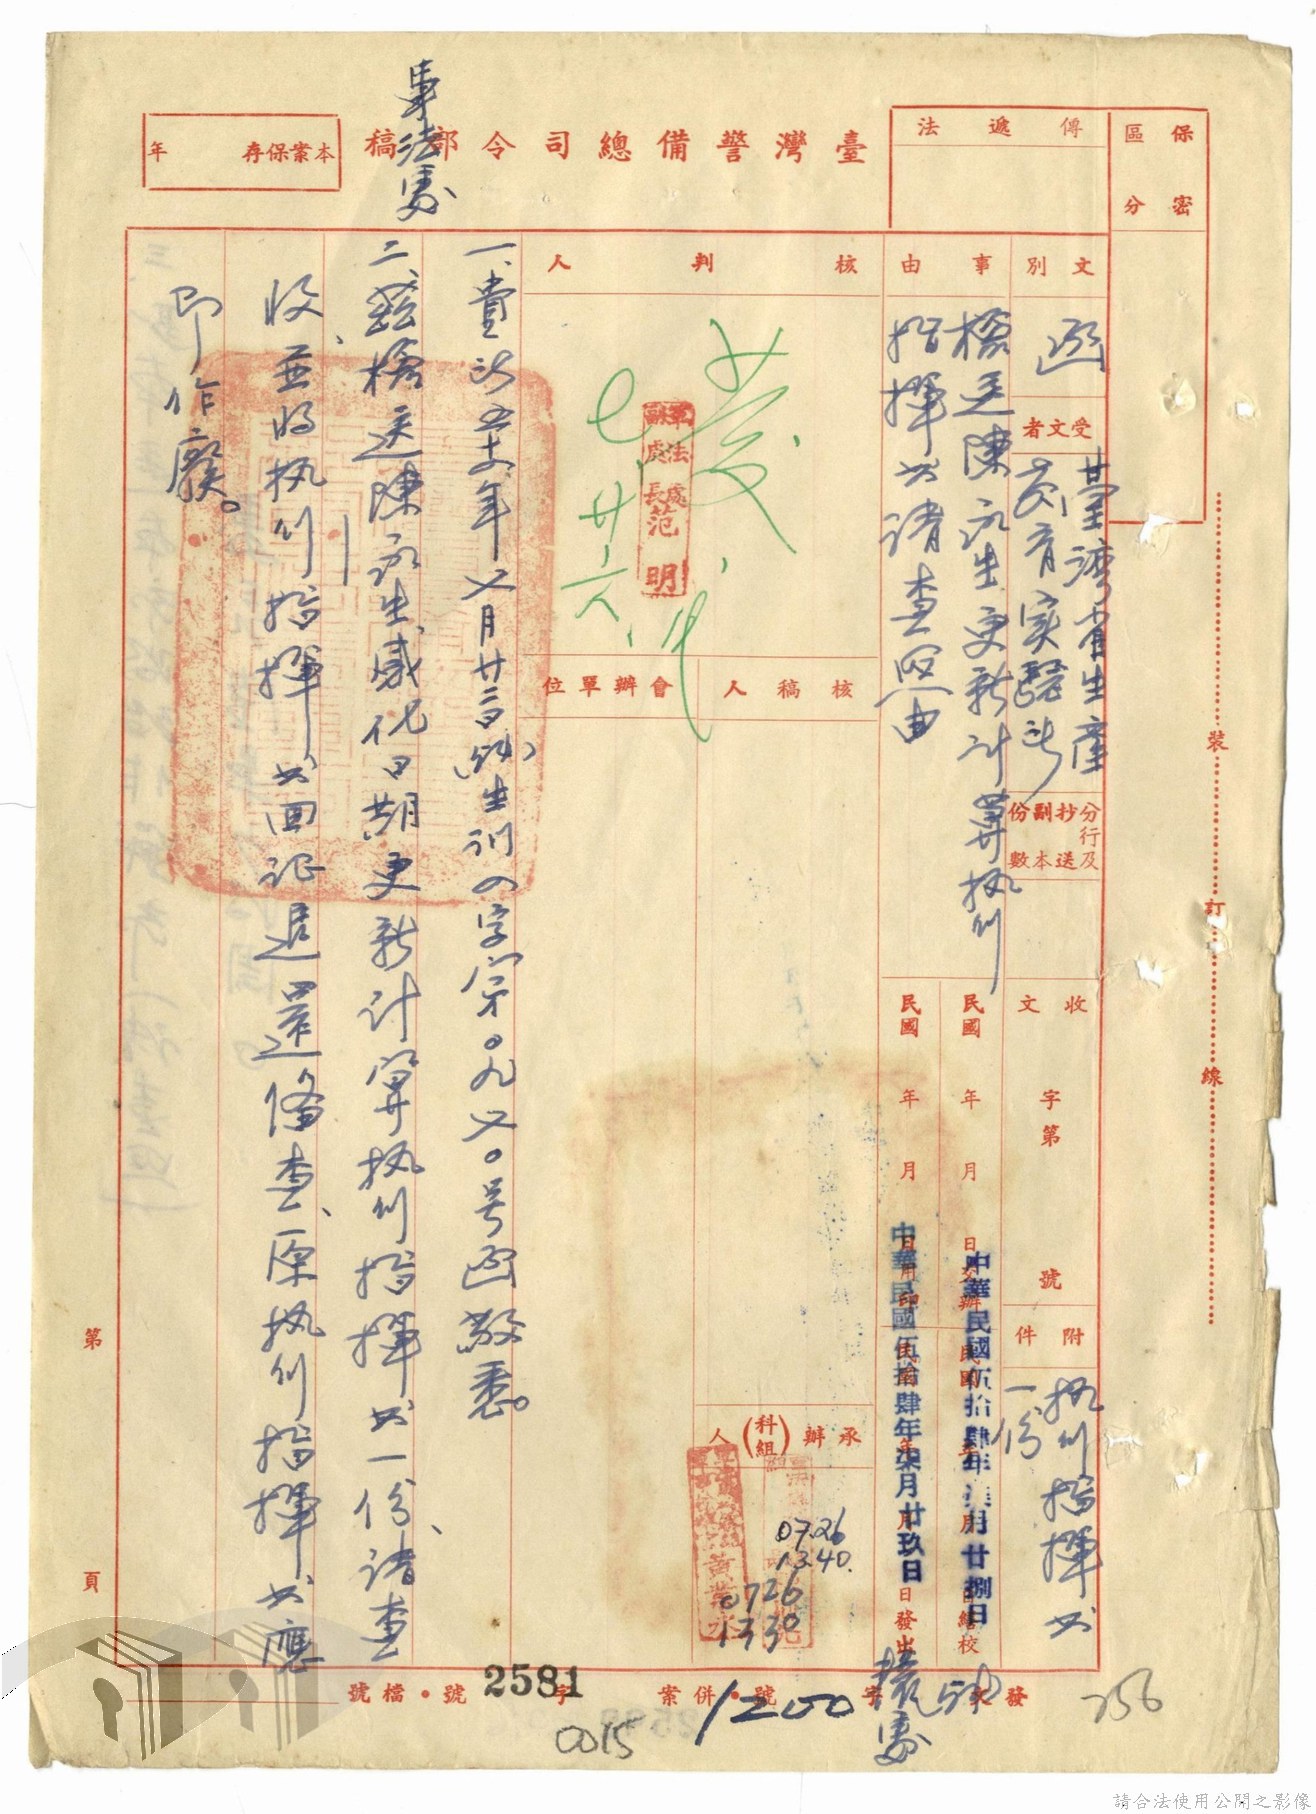 保密
區分
傳遞法
臺灣警備總司令部稿
軍法處
本案保存 年
文別
函
受文者
臺灣省生產
教育實驗所
分行及
抄送
副本
份數
收文 字第 號
附件
執行指揮书
一份
事由
檢送陳永生更新計算執行
指揮书請查照由
民國 年 月 日交辦
民國 年 月 日繕校
中華民國伍拾肆年柒月廿捌日
民國 年 月 日用印
日發出
中華民國伍拾肆年柒月廿玖日
核判人
發
軍法處
副處長范明
代
七、廿六、
核稿人
會辦單位
承辦(科組)人
0726
1340.
0726
1330
黃業水
一、貴所五十四年七月廿二日(54)生训四字第〇九七〇号函敬悉。
二、茲檢送陳永生感化日期更新計算執行指揮书一份、請查
收、並將執行指揮书回证退還備查、原執行指揮书應
即作廢。
裝
訂
線
第 頁
發文 字 號•併案 字 2581 號•檔號
1200
0015
256
請合法使用公開之影像